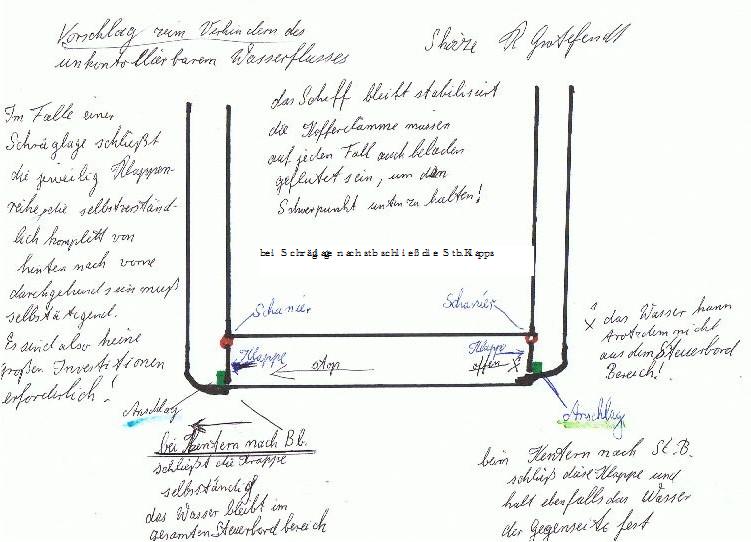 Vorschlag zum Verhindern des
unkontollierbarem Wasserflusses
Skizze R Grotefendt
Im Falle einer
Schräglage schließt
die jeweilig Klappen-
reihe, die selbstverständ-
lich komplett von
hinten nach vorne
durchgehend sein muß
selbstätigend.
Es sind also keine
großen Investitionen
erforderlich!
das Schiff bleibt stabilisiert
die Kofferdämme müssen
auf jeden Fall auch beladen
geflutet sein, um den
Schwerpunkt unten zu halten!
bei Schräglage nach stb schließ die Stb.Klapps
Scharnier
Scharnier
Klappe
stop
Klappe
offen X
X das Wasser kann
trotzdem nicht
aus dem Steuerbord
Bereich!
Anschlag
Anschlag
bei Kentern nach B.b.
schließt die Klappe
selbständig
das Wasser bleibt im
gesamten Steuerbord bereich
beim Kentern nach St.B.
schließ diese Klappe und
halt ebenfalls das Wasser
der Gegenseite fest